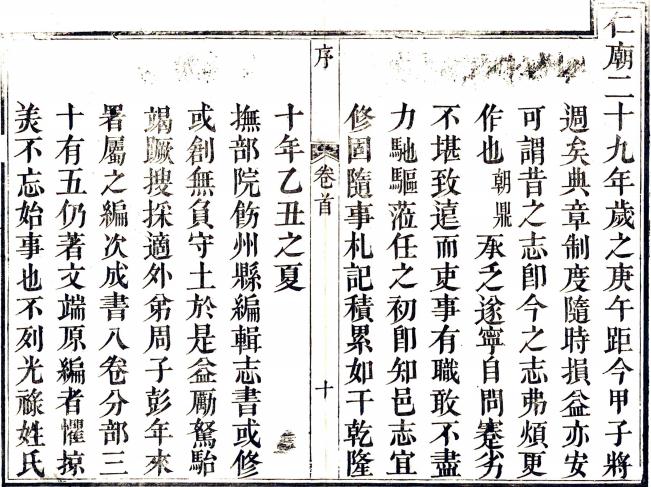 仁廟二十九年歲之庚午距今甲子將
週矣典章制度隨時損益亦安
可謂昔之志卽今之志弗煩更
作也朝鼎承乏遂寧自問蹇劣
不堪致遠而吏事有職敢不盡
力馳驅蒞任之初卽知邑志宜
修固隨事札記積累如干乾隆
序
卷首
十
十年乙丑之夏
撫部院飭州縣編輯志書或修
或創無負守土於是益勵駑駘
竭蹶搜採適外弟周子彭年來
署屬之編次成書八卷分部三
十有五仍著文端原編者懼掠
美不忘始事也不列光祿姓氏